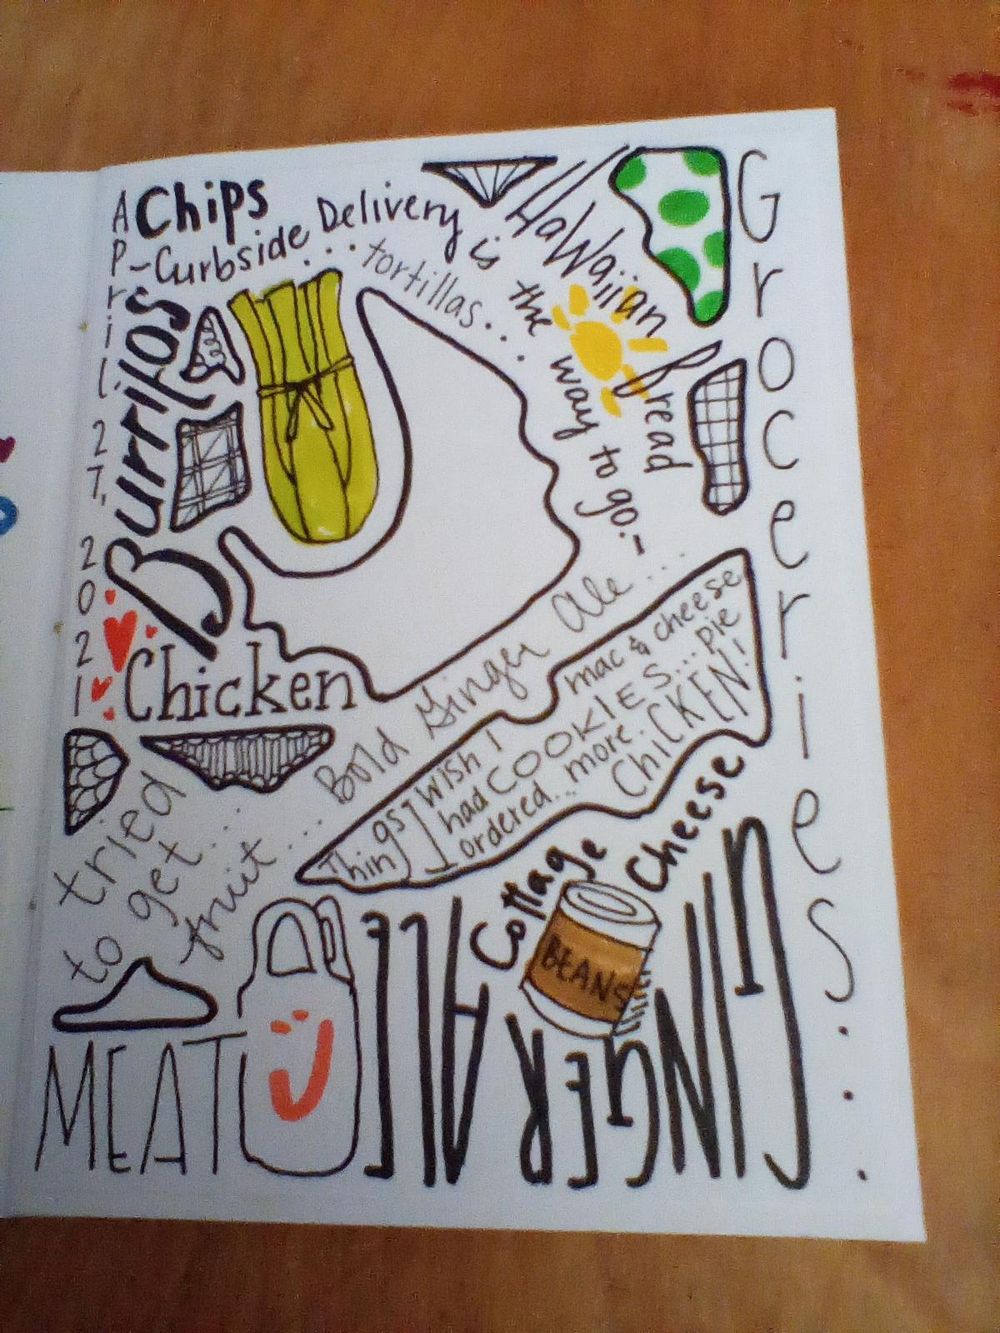 April 27, 2021
Chips
-Curbside Delivery is the way to go.-
...tortillas...
HaWaiian Bread
Groceries...
Burritos
Chicken
Bold Ginger Ale...
tried
to get...
fruit...
Things I wish I
had ordered...
mac & cheese
COOKIES... pie
more. CHICKEN!
Cottage Cheese
BEANS
MEAT
GINGER ALE